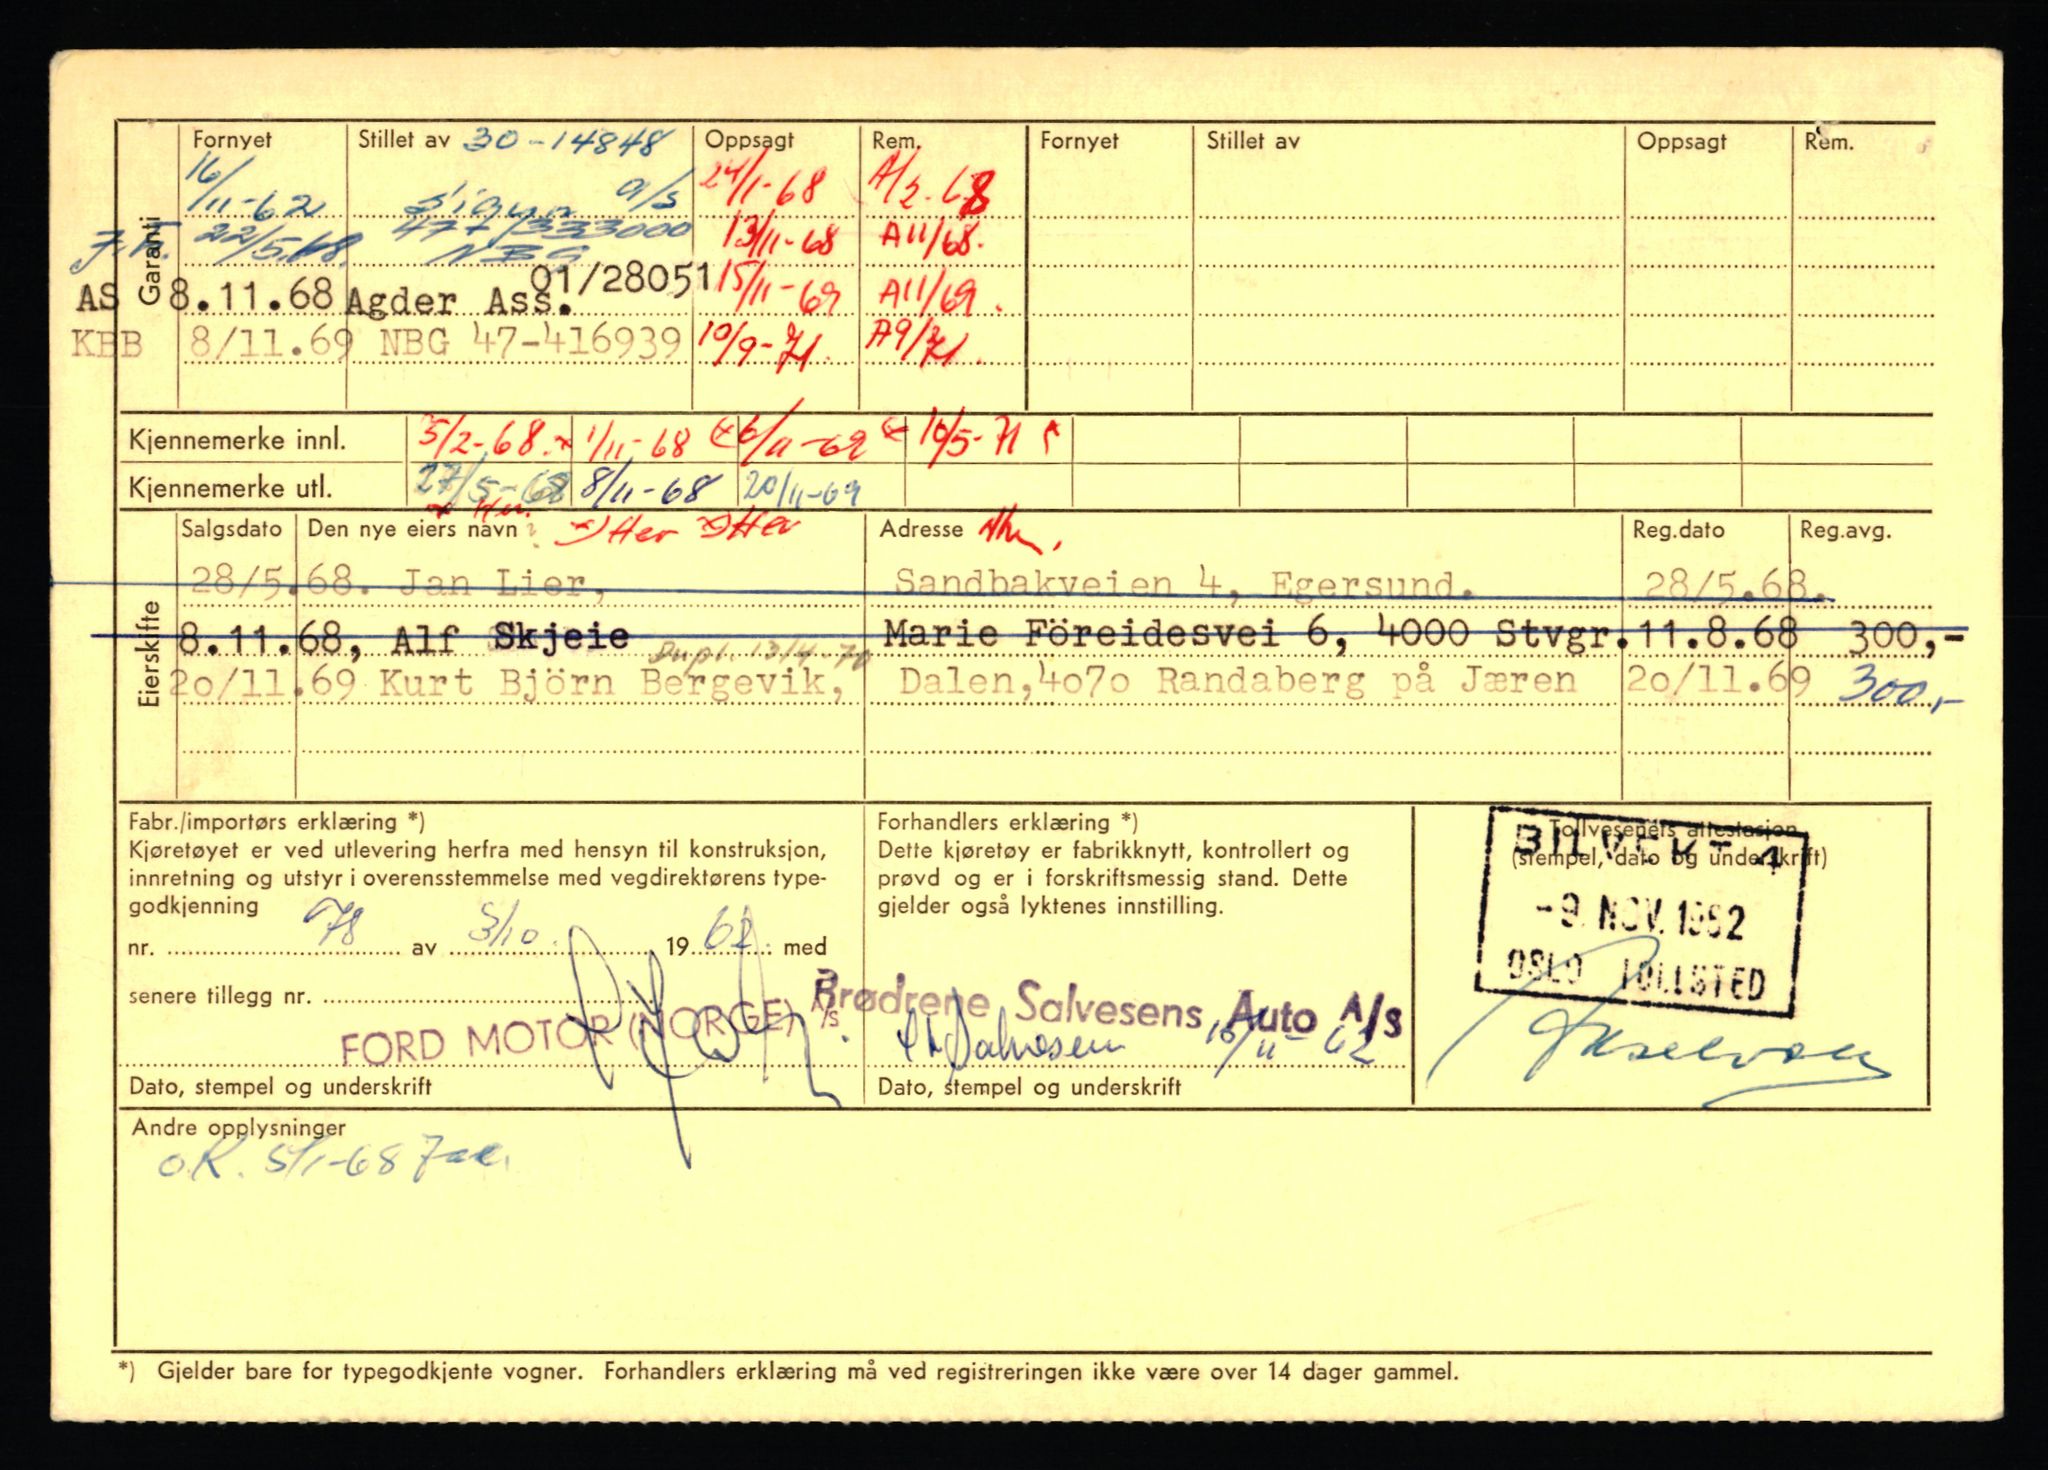 Garanti
Fornyet Stillet av 30-14848 Oppsagt Rem. Fornyet Stillet av Oppsagt Rem.
16/11-62 Sigyn a/s 24/1-68 A/2-68
22/5.68. 477/333000 NBG 13/11-68 A11/68.
AS 8.11.68 Agder Ass. 01/28051 15/11-69 A11/69.
KBB 8/11.69 NBG 47-416939 10/9-71. A9/71.
Kjennemerke innl. 5/2-68. 1/11-68 6/11-69 10/5-71
Kjennemerke utl. 27/5-68 8/11-68 20/11-69
Eierskifte
Salgsdato Den nye eiers navn Adresse Reg.dato Reg.avg.
28/5.68. Jan Lier, Sandbakveien 4, Egersund. 28/5.68.
8.11.68, Alf Skjeie Marie Föreidesvei 6, 4000 Stvgr. 11.8.68 300,-
Dupl. 13/4-70
20/11.69 Kurt Björn Bergevik, Dalen,4070 Randaberg på Jæren 20/11.69 300,-
Fabr./importørs erklæring *)
Kjøretøyet er ved utlevering herfra med hensyn til konstruksjon,
innretning og utstyr i overensstemmelse med vegdirektørens type-
godkjenning
nr. 78 av 3/10 1962 med
senere tillegg nr.
FORD MOTOR (NORGE) A/S
Dato, stempel og underskrift
Forhandlers erklæring *)
Dette kjøretøy er fabrikknytt, kontrollert og
prøvd og er i forskriftsmessig stand. Dette
gjelder også lyktenes innstilling.
Brødrene Salvesens Auto A/S
Salvesen 15/11-62
Dato, stempel og underskrift
Tollvesenets attestasjon
(stempel, dato og underskrift)
-9. NOV. 1962
OSLO TOLLSTED
Andre opplysninger
O.K. 5/1-68
*) Gjelder bare for typegodkjente vogner. Forhandlers erklæring må ved registreringen ikke være over 14 dager gammel.